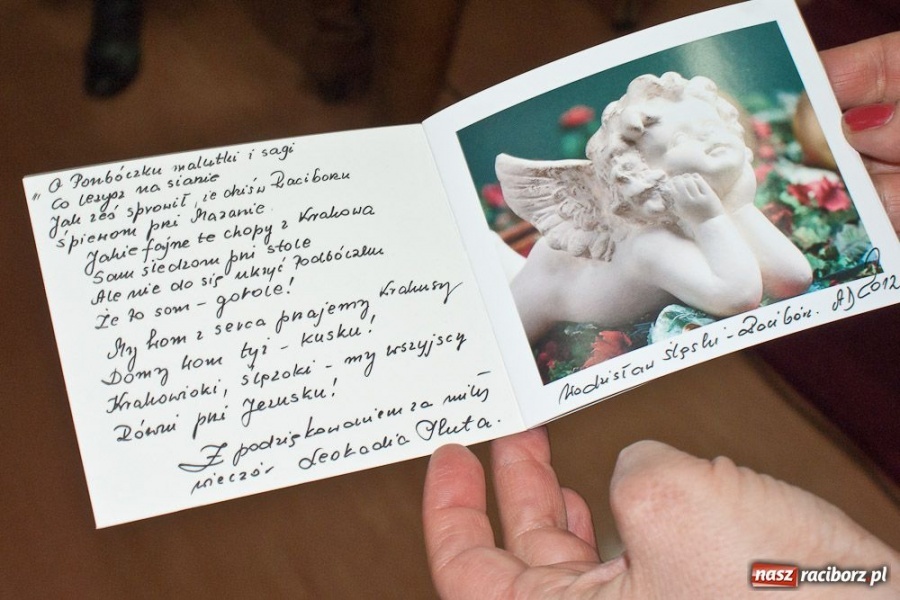 "O Ponbóczku malutki i sagi
Co leżysz na sianie
Jak żeś sprowił, że dziś w Raciborzu
śpiewom przi Mazanie.
Jakie fajne te chopy z Krakowa
Sam siedzom przi stole
Ale nie do się ukryć Podbóczku
Że to som - gorole!
My wom z serca przajemy Krakusy
Domy wom tyż - kusku!
Krakowioki, ślązoki - my wszyjscy
Równi przi Jezusku!
Z podziękowaniem za miły
wieczór Leokadia Pluta.
Wodzisław Śląski - Racibórz. AD 2012
nasz raciborz pl